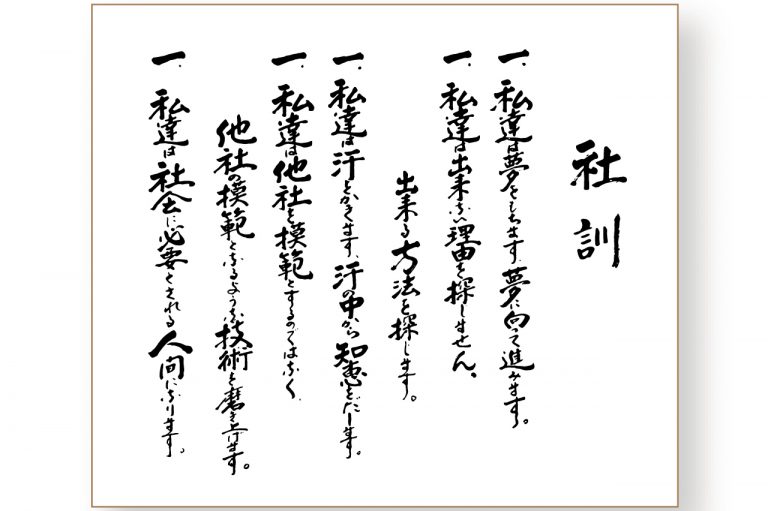 社訓
一、私達は夢をもちます。夢に向って進みます。
一、私達は出来ない理由を探しません。
出来る方法を探します。
一、私達は汗をかきます、汗の中から知恵をだします。
一、私達は他社を模範とするのではなく、
他社の模範となるような技術を磨き上げます。
一、私達は社会に必要とされる人間になります。